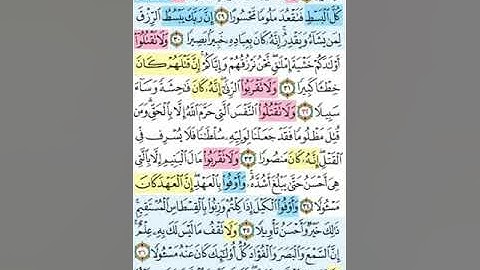 كُلَّ الْبَسْطِ فَتَقْعُدَ مَلُومًا مَّحْسُورًا ٢٩ إِنَّ رَبَّكَ يَبْسُطُ الرِّزْقَ
لِمَن يَشَاءُ وَيَقْدِرُ إِنَّهُ كَانَ بِعِبَادِهِ خَبِيرًا بَصِيرًا ٣٠ وَلَا تَقْتُلُوا
أَوْلَادَكُمْ خَشْيَةَ إِمْلَاقٍ نَّحْنُ نَرْزُقُهُمْ وَإِيَّاكُمْ إِنَّ قَتْلَهُمْ كَانَ
خِطْئًا كَبِيرًا ٣١ وَلَا تَقْرَبُوا الزِّنَى إِنَّهُ كَانَ فَاحِشَةً وَسَاءَ
سَبِيلًا ٣٢ وَلَا تَقْتُلُوا النَّفْسَ الَّتِي حَرَّمَ اللَّهُ إِلَّا بِالْحَقِّ وَمَن
قُتِلَ مَظْلُومًا فَقَدْ جَعَلْنَا لِوَلِيِّهِ سُلْطَانًا فَلَا يُسْرِف فِّي
الْقَتْلِ إِنَّهُ كَانَ مَنصُورًا ٣٣ وَلَا تَقْرَبُوا مَالَ الْيَتِيمِ إِلَّا بِالَّتِي
هِيَ أَحْسَنُ حَتَّى يَبْلُغَ أَشُدَّهُ وَأَوْفُوا بِالْعَهْدِ إِنَّ الْعَهْدَ كَانَ
مَسْئُولًا ٣٤ وَأَوْفُوا الْكَيْلَ إِذَا كِلْتُمْ وَزِنُوا بِالْقِسْطَاسِ الْمُسْتَقِيمِ
ذَلِكَ خَيْرٌ وَأَحْسَنُ تَأْوِيلًا ٣٥ وَلَا تَقْفُ مَا لَيْسَ لَكَ بِهِ عِلْمٌ
إِنَّ السَّمْعَ وَالْبَصَرَ وَالْفُؤَادَ كُلُّ أُولَئِكَ كَانَ عَنْهُ مَسْئُولًا ٣٦